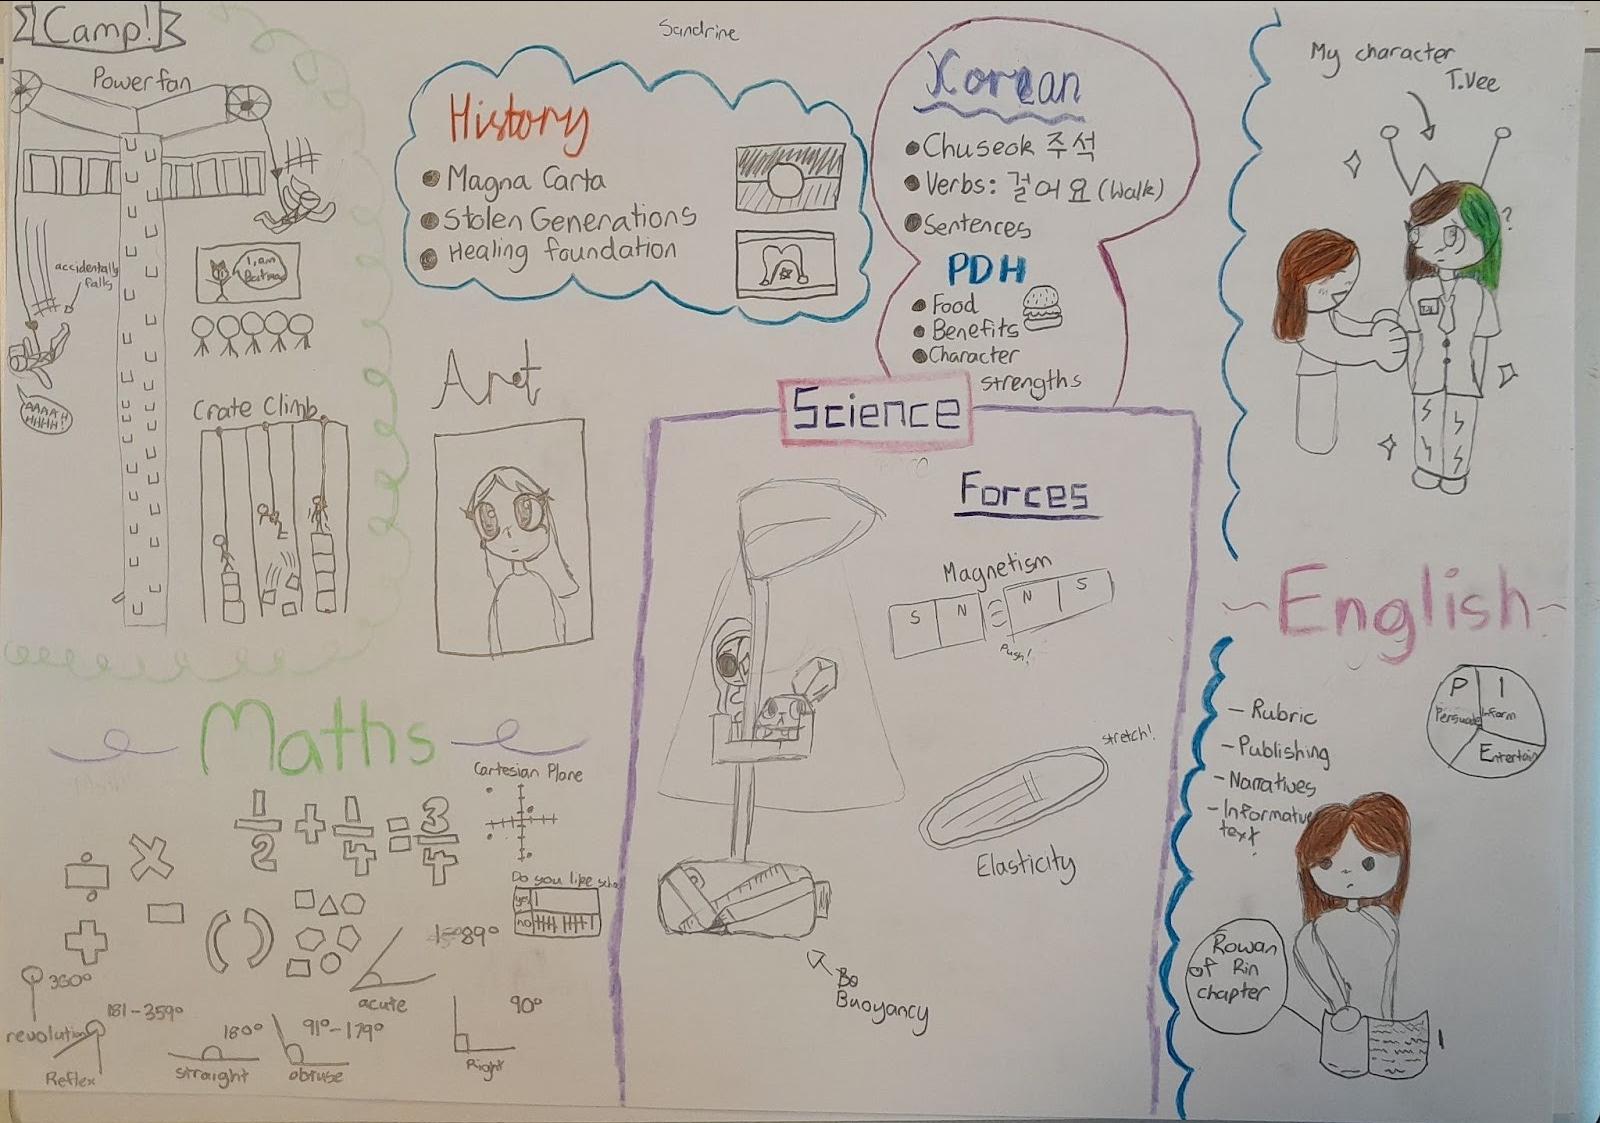 Camp!
Powerfan
accidentally
falls
AAAAH
HHHH!
I am
Crate Climb
Sandrine
History
Magna Carta
Stolen Generations
Healing foundation
Korean
Chuseok 주석
Verbs: 걸어요 (Walk)
Sentences
PDH
Food
Benefits
Character
strengths
My character
T.Vee
?
Art
Science
Forces
Magnetism
S N N S
Push!
stretch!
Elasticity
Buoyancy
~English~
- Rubric
- Publishing
- Narratives
- Informative
text
P I
Persuade Inform
Entertain
Rowan
of Rin
chapter
1
Maths
Cartesian Plane
1/2 + 1/4 = 3/4
÷ ×
+ -
( )
Do you like
yes
no
89°
acute
360°
revolution
181-359°
Reflex
180°
straight
91°-179°
obtuse
90°
Right